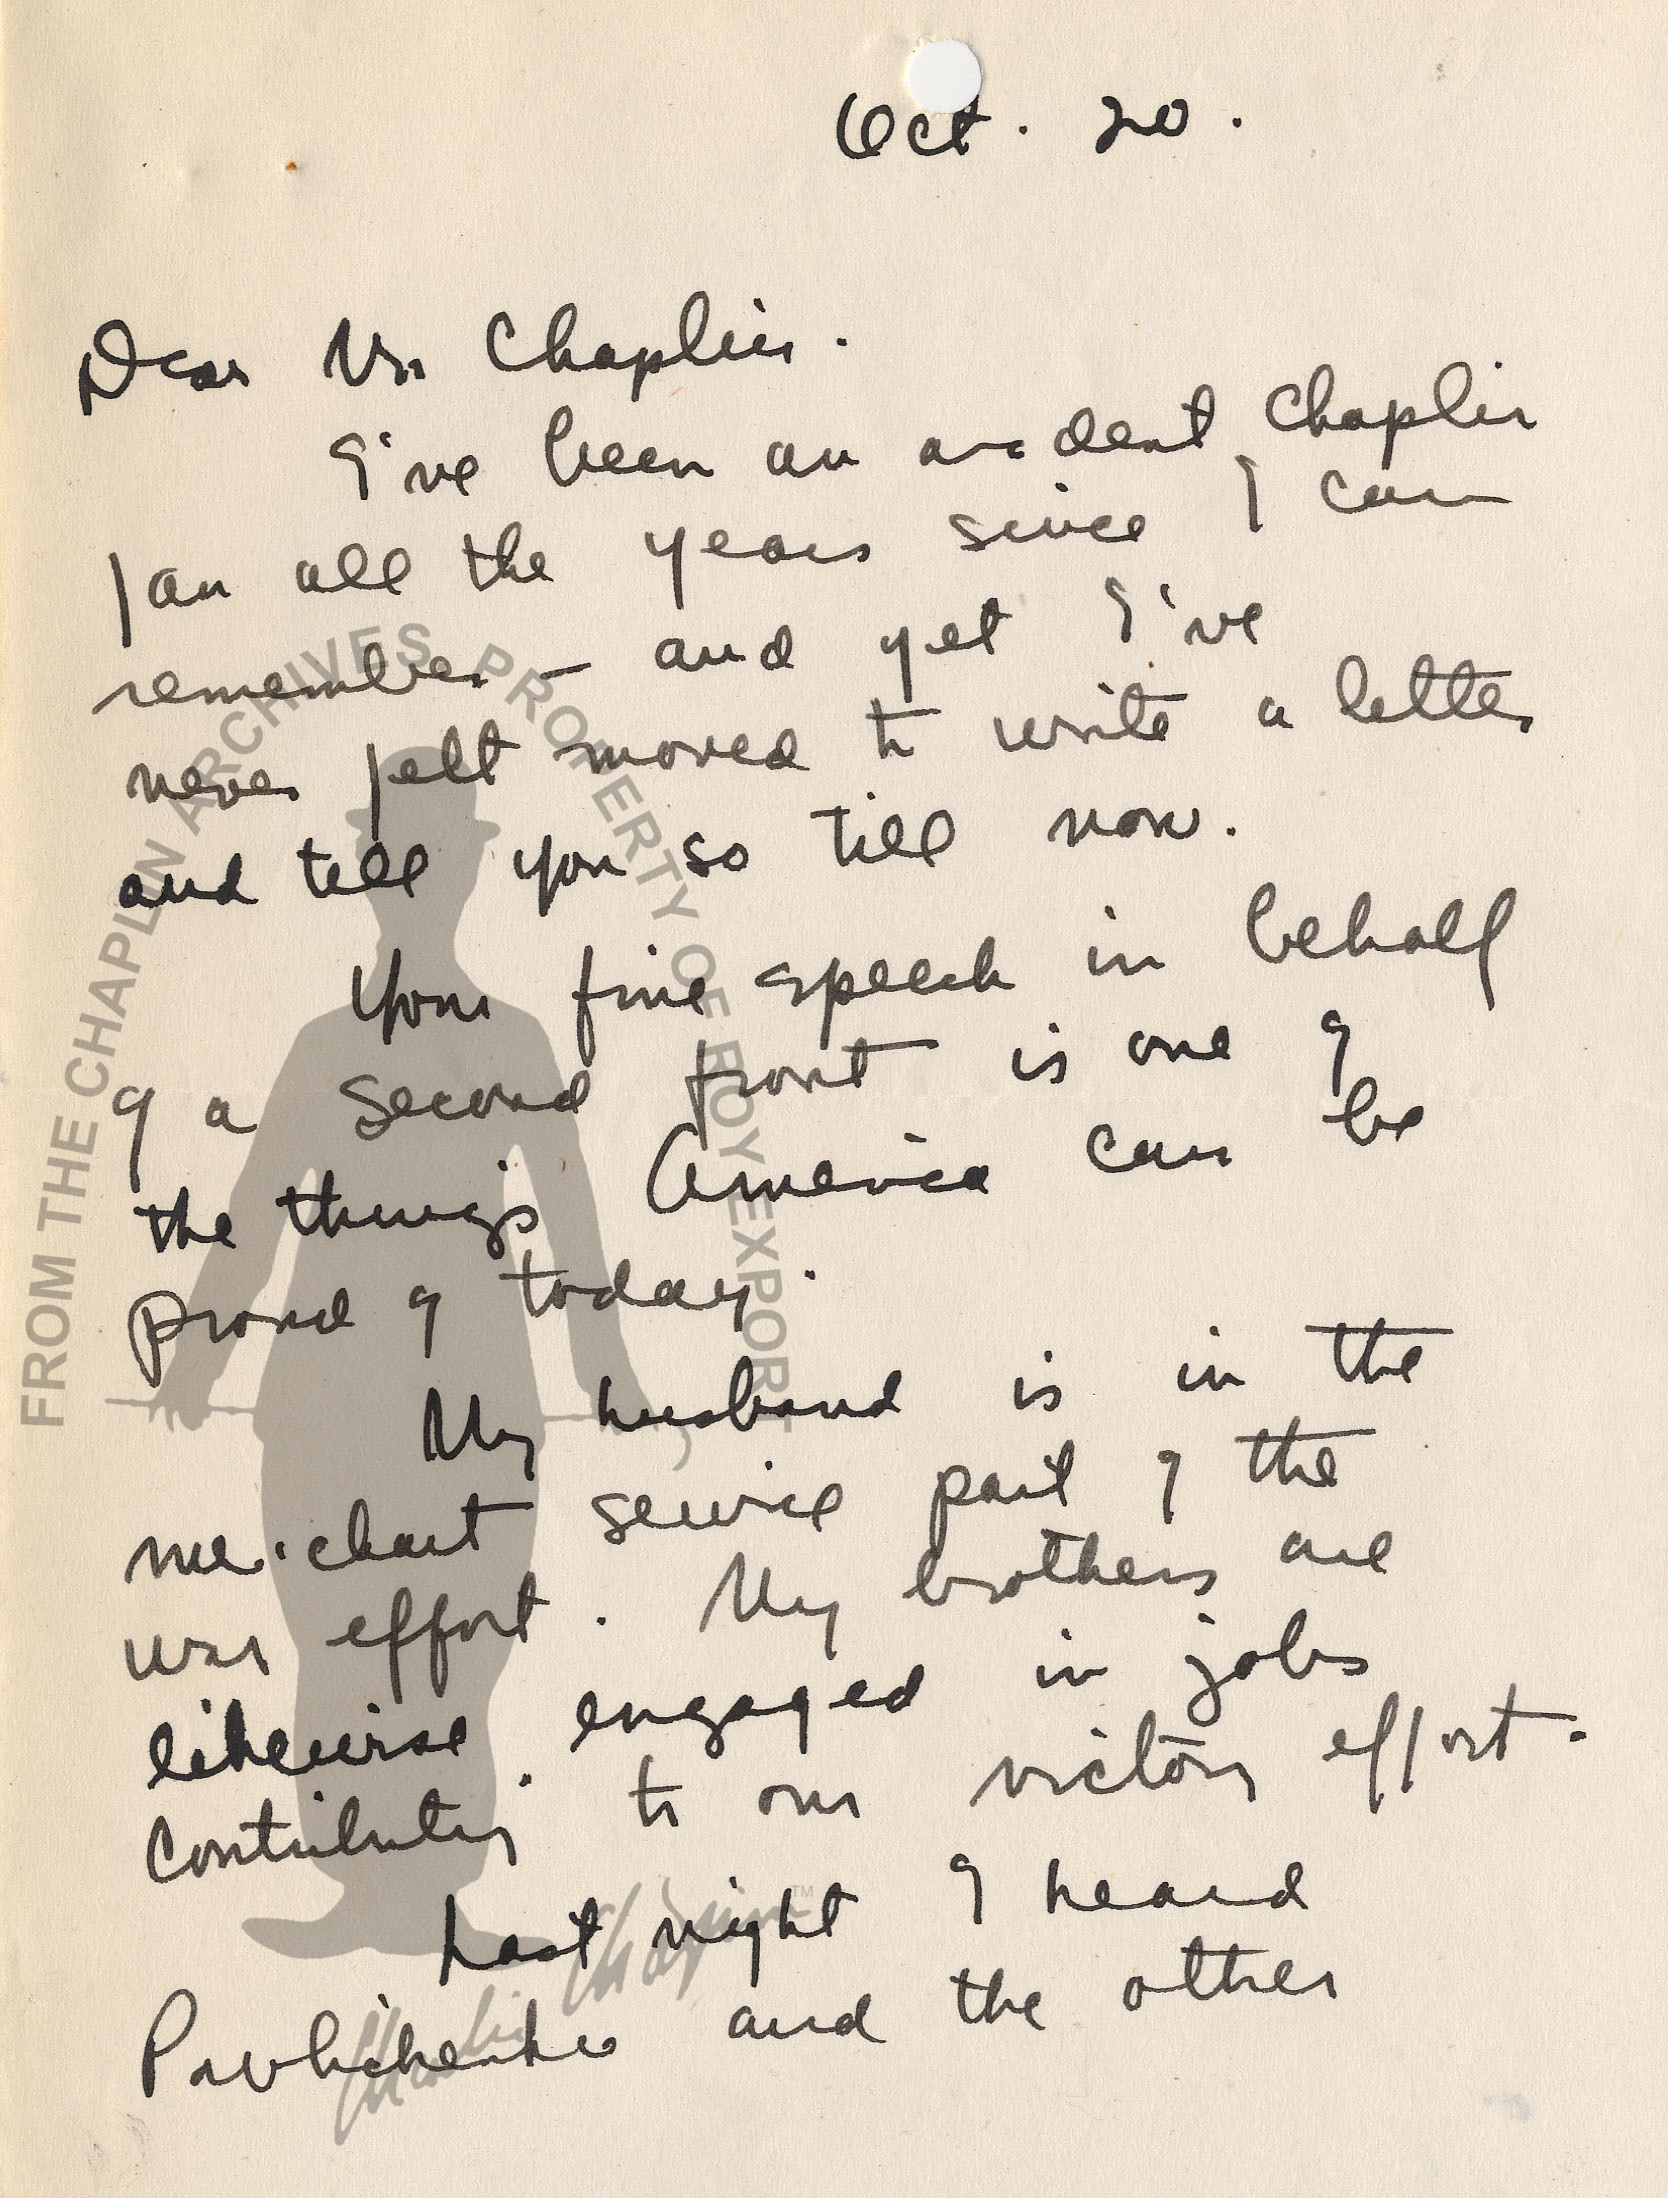 Oct. 20.
Dear Mr Chaplin.
I've been an ardent Chaplin
fan all the years since I can
remember – and yet I've
never felt moved to write a letter
and tell you so till now.
Your fine speech in behalf
of a second front is one of
the things America can be
proud of today.
My husband is in the
merchant service part of the
war effort. My brothers are
likewise engaged in jobs
contributing to our victory effort.
Last night I heard
Pavlichenko and the other
FROM THE CHAPLIN ARCHIVES PROPERTY OF ROY EXPORT
Charlie Chaplin TM